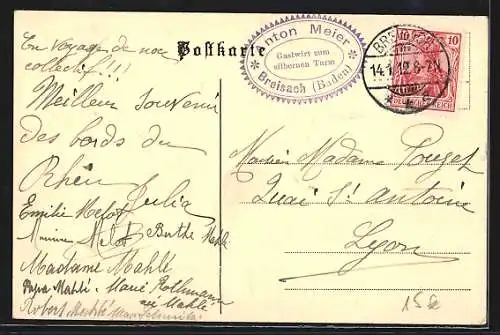 En voyage de noce
collectif!!!
Meilleur souvenir
des bords du
Rhin
Julia
Emilie Melot
Melot Berthe Mahlé
Madame Mahlé
Papa Mahlé. Marie Rothmann
née Mahlé
Robert Mahlé
Postkarte
Anton Meier
Gastwirt zum
silbernen Turm
Breisach (Baden)
BREISACH
14.1.12.8-7N.
10 10
DEUTSCHES REICH
Madame Pouget
Quai St Antoine
Lyon
15€